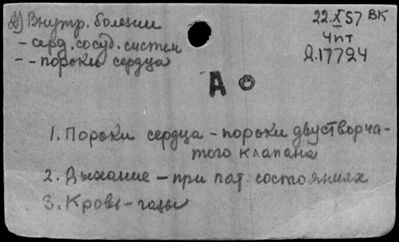 2) Внутр. болезни
- серд. сосуд. систем
- - пороки сердца
22.X.57 ВК
4пт
Д.17724
А
1. Пороки сердца - пороки двустворча-
того клапана
2. Дыхание - при пат. состояниях
3. Кровь - газы